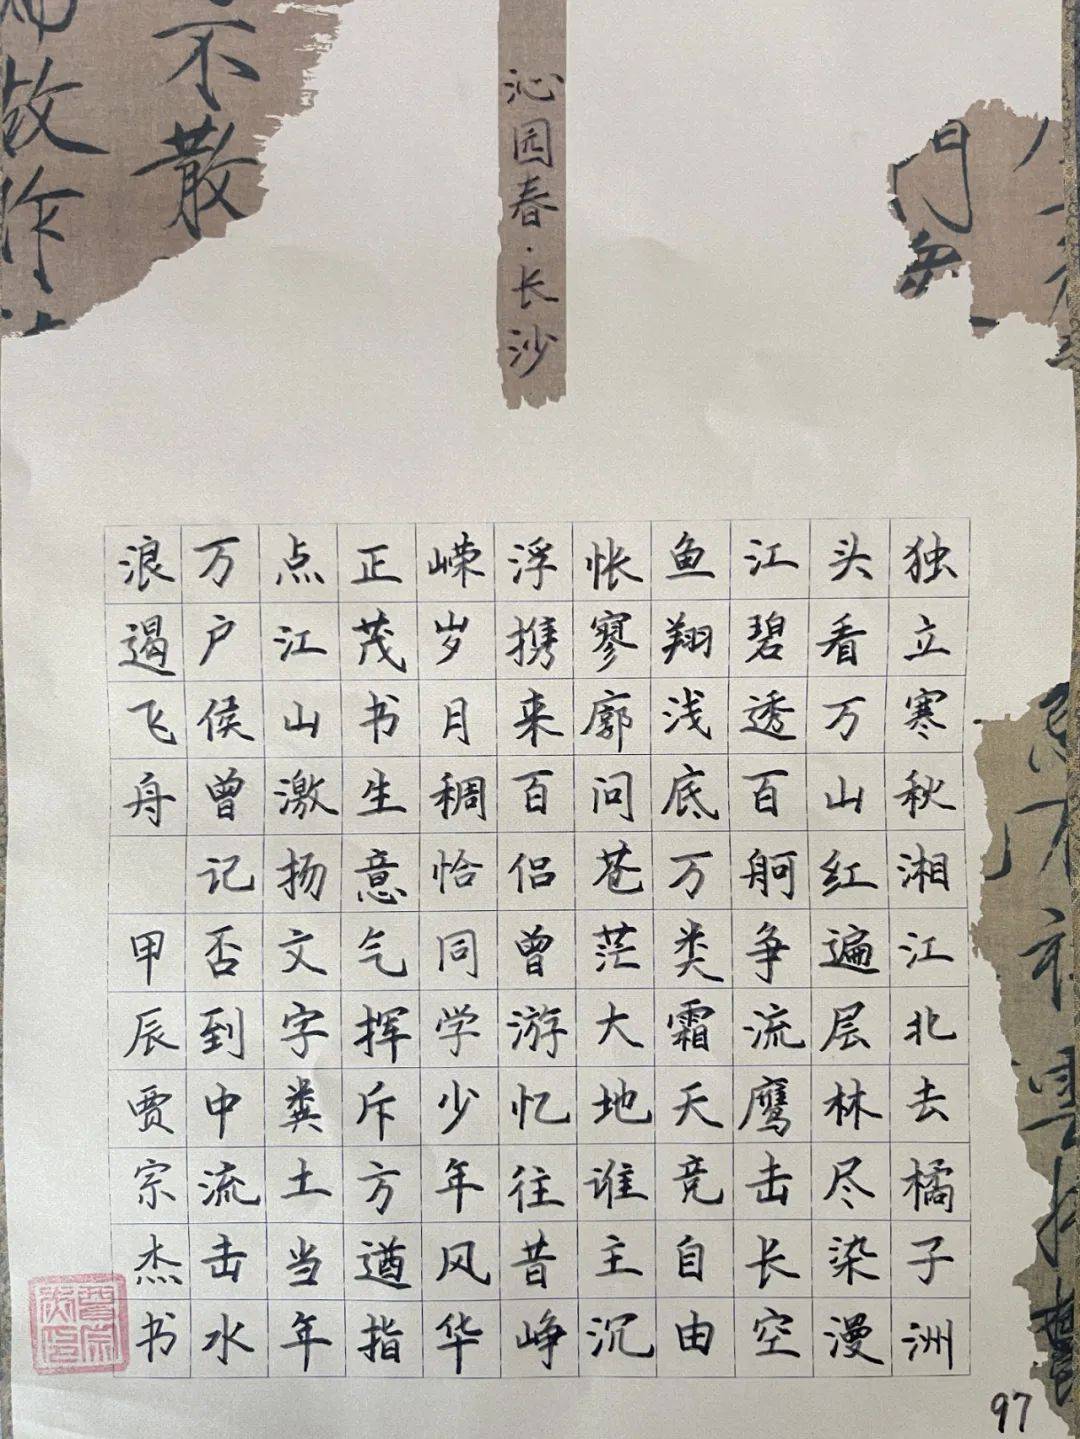 沁园春·长沙
独立寒秋湘江北去橘子洲
头看万山红遍层林尽染漫
江碧透百舸争流鹰击长空
鱼翔浅底万类霜天竞自由
怅寥廓问苍茫大地谁主沉
浮携来百侣曾游忆往昔峥
嵘岁月稠恰同学少年风华
正茂书生意气挥斥方遒指
点江山激扬文字粪土当年
万户侯曾记否到中流击水
浪遏飞舟 甲辰贾宗杰书
不散
故
97